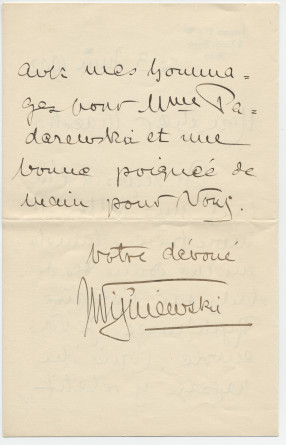 avec mes homma-
ges pour Mme Pa-
darewska et une
bonne poignée de
main pour Vous.
votre dévoué
Wiśniewski